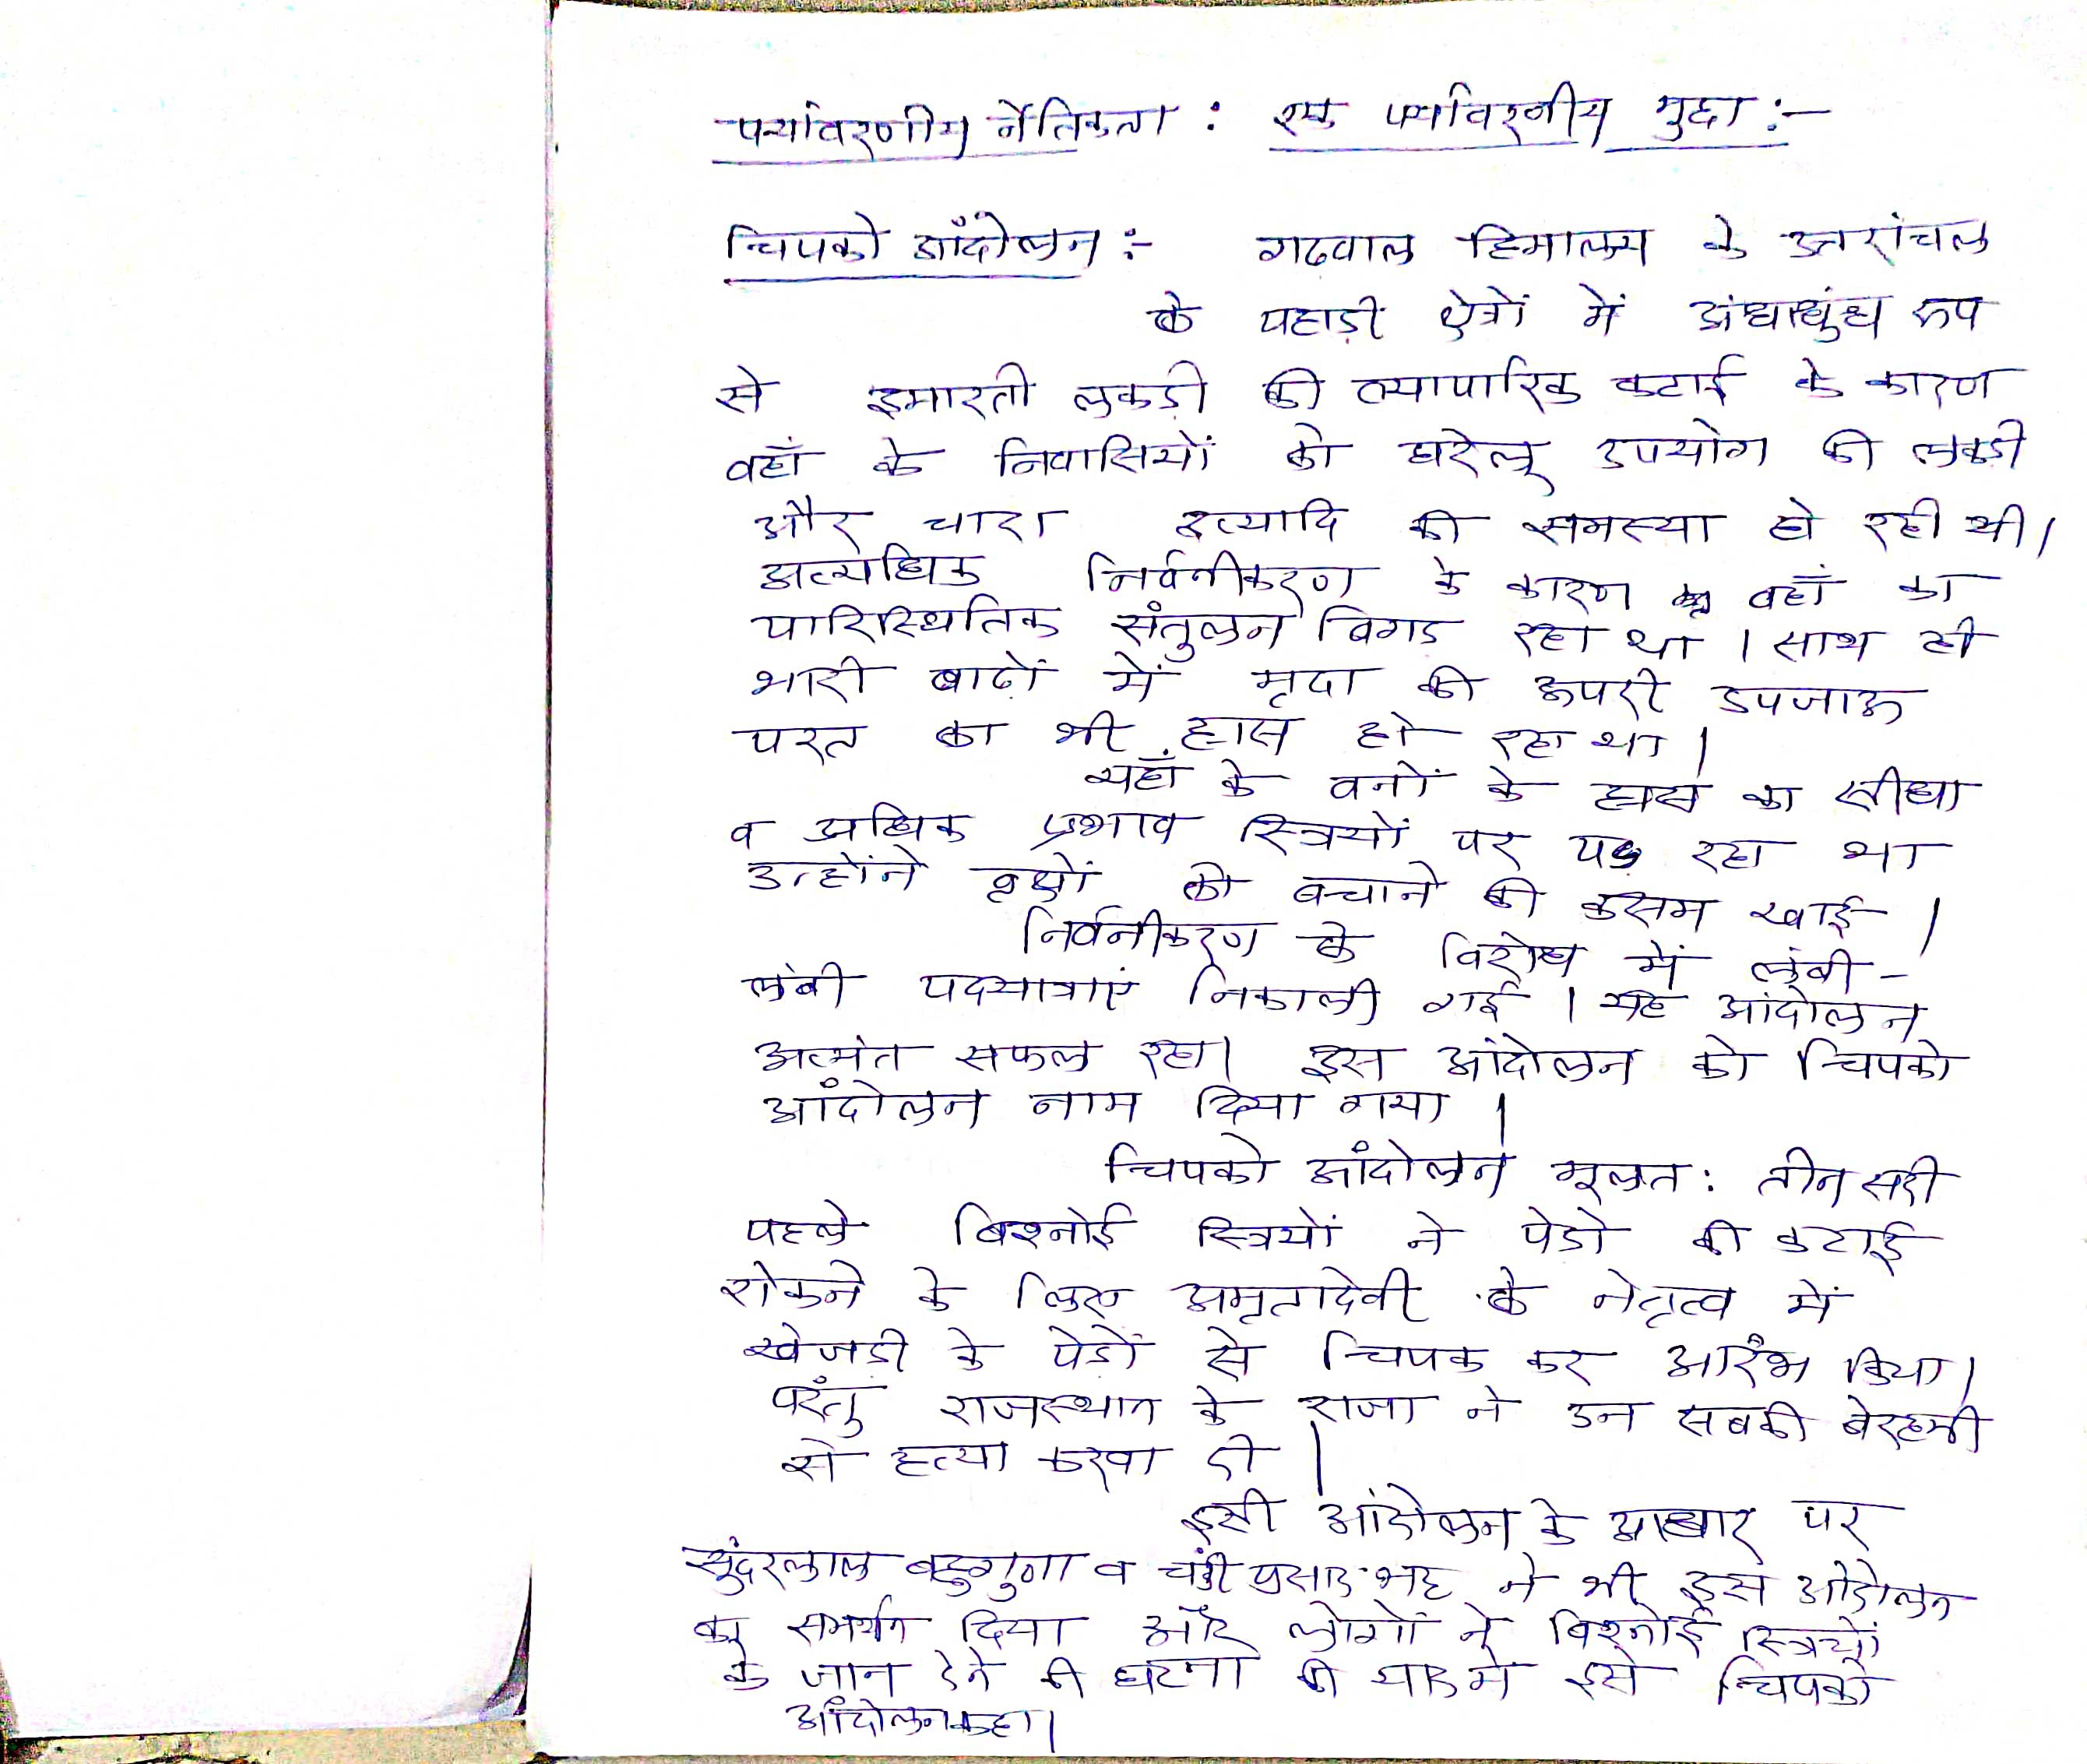 पर्यावरणीय नैतिकता : एक पर्यावरणीय मुद्दा :-
चिपको आँदोलन :- गढवाल हिमालय के उत्तरांचल
के पहाडी क्षेत्रों में अंधाधुंध रूप
से इमारती लकडी की व्यापारिक कटाई के कारण
वहाँ के निवासियों को घरेलू उपयोग की लकडी
और चारा इत्यादि की समस्या हो रही थी।
अत्यधिक निर्वनीकरण के कारण वहाँ का
पारिस्थितिक संतुलन बिगड रहा था । साथ ही
भारी बाढों में मृदा की ऊपरी उपजाऊ
परत का भी ह्रास हो रहा था।
यहाँ के वनों के ह्रास का सीधा
व अधिक प्रभाव स्त्रियों पर पड रहा था
उन्होंने वृक्षों को बचाने की कसम खाई ।
निर्वनीकरण के विरोध में लंबी -
लंबी पदयात्राएं निकाली गई । यह आंदोलन
अत्यंत सफल रहा। इस आंदोलन को चिपको
आंदोलन नाम दिया गया ।
चिपको आंदोलन मूलत: तीन सदी
पहले बिश्नोई स्त्रियों ने पेडो की कटाई
रोकने के लिए अमृतादेवी के नेतृत्व में
खेजडी के पेडों से चिपक कर आरँभ किया।
परँतु राजस्थान के राजा ने उन सबकी बेरहमी
से हत्या करवा दी ।
इसी आंदोलन के आधार पर
सुंदरलाल बहुगुणा व चंडी प्रसाद भट्ट ने भी इस आंदोलन
का समर्थन दिया और लोगों ने बिश्नोई स्त्रियों
के जान देने की घटना की याद मे इसे चिपको
आँदोलन कहा।